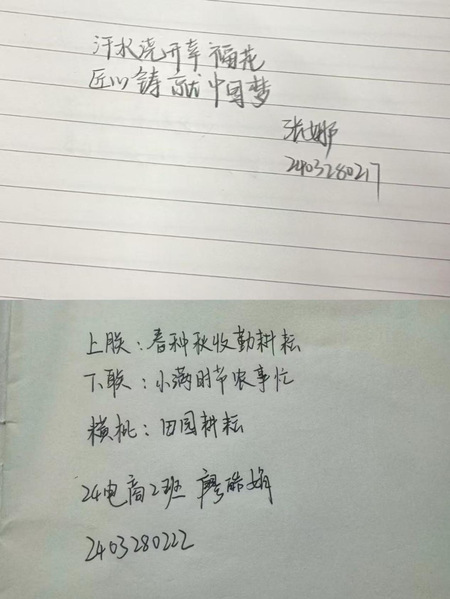 汗水浇开幸福花
匠心铸就中国梦
张娜
2403280217
上联：春种秋收勤耕耘
下联：小满时节农事忙
横桃：田园耕耘
24电商2班 廖皓娟
2403280222